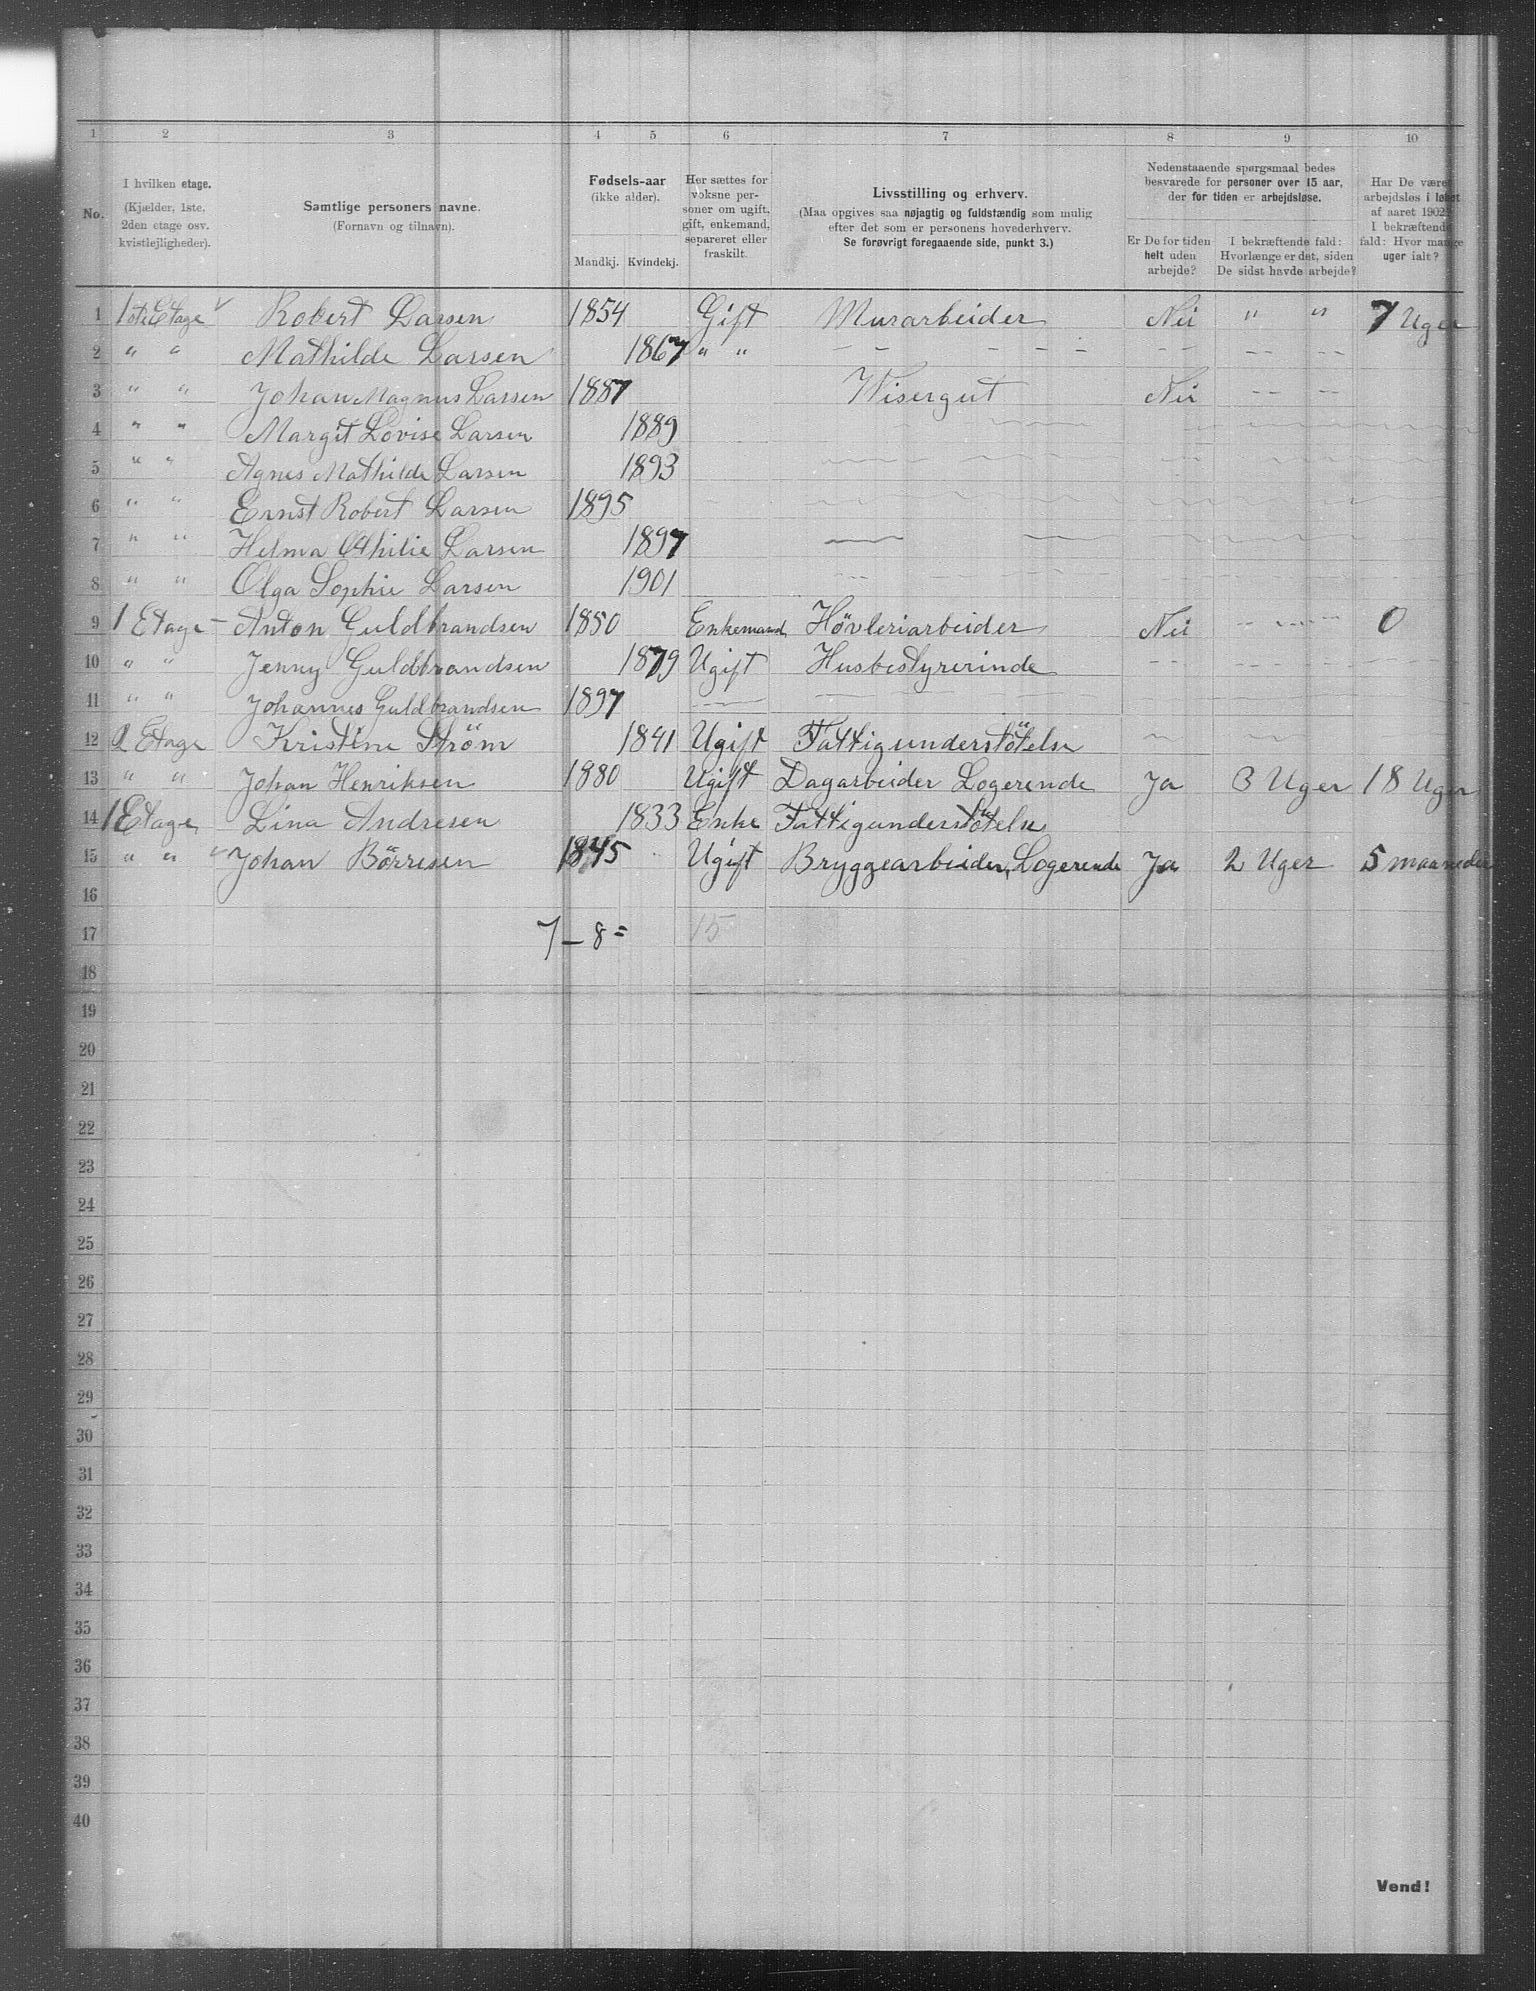 1 2 3 4 5 6 7 8 9 10
No.
I hvilken etage.
(Kjælder, 1ste,
2den etage osv.
kvistlejligheder).
Samtlige personers navne.
(Fornavn og tilnavn).
Fødsels-aar
(ikke alder).
Mandkj. Kvindekj.
Her sættes for
voksne per-
soner om ugift,
gift, enkemand,
separeret eller
fraskilt.
Livsstilling og erhverv.
(Maa opgives saa nøjagtig og fuldstændig som mulig
efter det som er personens hovederhverv.
Se forøvrigt foregaaende side, punkt 3.)
Nedenstaaende spørgsmaal bedes
besvarede for personer over 15 aar,
der for tiden er arbejdsløse.
Er De for tiden
helt uden
arbejde?
I bekræftende fald:
Hvorlænge er det, siden
De sidst havde arbejde?
Har De være
arbejdsløs i løbet
af aaret 1902?
I bekræftende
fald: Hvor mange
uger ialt?
1 1ste Etage Robert Larsen 1854 Gift Murarbeider Nei " " 7 Uger
2 " " Mathilde Larsen 1867 " "
3 " " Johan Magnus Larsen 1887 Visergut Nei
4 " " Margit Lovise Larsen 1889
5 " " Agnes Mathilde Larsen 1893
6 " " Ernst Robert Larsen 1895
7 " " Helma Larsen 1897
8 " " Olga Sophie Larsen 1901
9 1 Etage - Anton Guldbrandsen 1850 Enkemand Hövleriarbeider Nei 0
10 " " Jenny Guldbrandsen 1879 Ugift Husbestyrerinde
11 " " Johannes Guldbrandsen 1897
12 2 Etage Kristine Strøm 1841 Ugift Fattigunderstötelse
13 " " Johan Henriksen 1880 Ugift Dagarbeider Logerende Ja 3 Uger 18 Uger
14 1 Etage Lina Andresen 1833 Enke Fattigunderstötelse
15 " " Johan Börresen 1845 Ugift Bryggearbeider, Logerende Ja 2 Uger 5 maaneder
16
17 7 - 8 = 15
18
19
20
21
22
23
24
25
26
27
28
29
30
31
32
33
34
35
36
37
38
39
40
Vend!